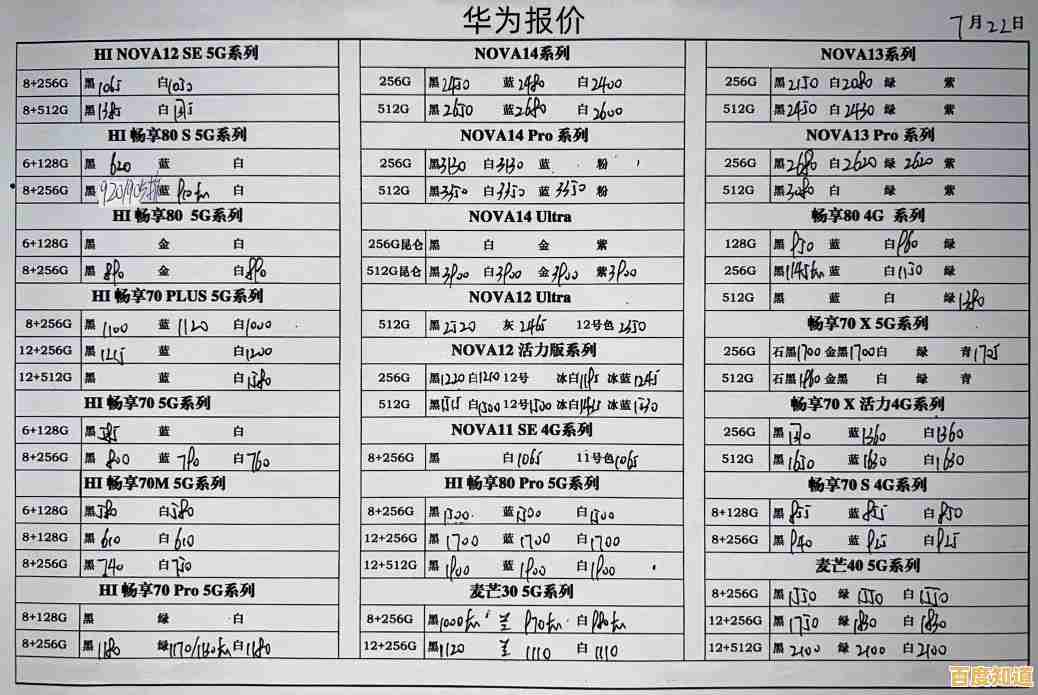 华为报价
7月22日
HI NOVA12 SE 5G系列
8+256G 黑1065 白1050
8+512G 黑1385 白
HI 畅享80 S 5G系列
6+128G 黑 620 蓝 白
8+256G 黑 蓝 白
HI 畅享80 5G系列
6+128G 黑 金 白
8+256G 黑 890 金 白890
HI 畅享70 PLUS 5G系列
8+256G 黑1100 蓝1120 白1000
12+256G 黑1215 蓝 白1200
12+512G 黑 蓝 白1580
HI 畅享70 5G系列
6+128G 黑585 蓝 白
8+256G 黑 800 蓝790 白760
HI 畅享70M 5G系列
6+128G 黑580 白580
8+128G 黑610 白610
8+256G 黑740 白750
HI 畅享70 Pro 5G系列
8+128G 黑 绿 白
8+256G 黑1180 绿 白1180
NOVA14系列
256G 黑2450 蓝2480 白2400
512G 黑2650 蓝2680 白2600
NOVA14 Pro 系列
256G 黑3130 白3130 蓝 粉
512G 黑3350 白3350 蓝3350 粉
NOVA14 Ultra
256G昆仑 黑 白 金 紫
512G昆仑 黑3900 白3900 金3900 紫3900
NOVA12 Ultra
512G 黑2520 灰2465 12号色2350
NOVA12 活力版系列
256G 黑1220 白1210 12号 冰白1185 冰蓝1245
512G 黑1515 白1500 12号1500 冰白 冰蓝1530
NOVA11 SE 4G系列
8+256G 黑 白1065 11号色1065
HI 畅享80 Pro 5G系列
8+256G 黑1500 蓝1500 白1500
12+256G 黑1700 蓝1700 白1700
12+512G 黑1900 蓝1900 白1900
麦芒30 5G系列
8+256G 黑1000 970 白980
12+256G 黑1120 1110 白1110
NOVA13系列
256G 黑2150 白2080 绿 紫
512G 黑2450 白2430 绿 紫
NOVA13 Pro 系列
256G 黑2680 白2620 绿2620 紫
512G 黑3080 白 绿 紫
畅享80 4G 系列
128G 黑950 蓝 白960 绿
256G 黑1145 蓝 白1150 绿
512G 黑 蓝 白 绿1380
畅享70 X 5G系列
256G 石墨1700 金黑1700 白 绿 青1725
512G 石墨1980 金黑 白 绿 青
畅享70 X 活力4G系列
256G 黑 蓝1360 白1360
512G 黑1630 蓝1630 白1630
畅享70 S 4G系列
8+128G 黑855 蓝855 白850
8+256G 黑940 蓝925 白925
麦芒40 5G系列
8+256G 黑1550 绿1550 白1550
12+256G 黑1750 绿1830 白1830
12+512G 黑2100 绿2100 白2100
百度知道